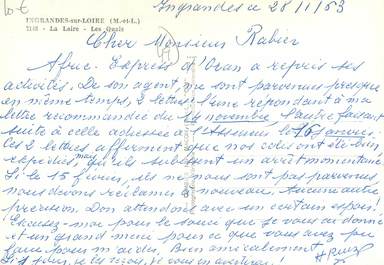 10€
Ingrandes le 28/1/53
INGRANDES-sur-LOIRE (M.-et-L.)
- La Loire - Les Quais
Cher Monsieur Rabier
Afric. Express d'Oran a repris ses
activités. De son agent, me sont parvenues presque
en même temps, 2 lettres l'une répondant à ma
lettre recommandée du novembre, l'autre faisant
suite à celle adressée à le 16 janvier.
Les 2 lettres affirment que nos colis ont été bien
expédiés mais qu'ils subissent un arrêt momentané.
Si le 15 février, ils ne nous sont pas parvenus
nous devons réclamer à nouveau. Aucune autre
précision. Donc attendons avec un certain espoir!
Excusez-moi pour le souci que je vous ai donné
et un grand merci pour ce que vous avez pu
faire pour m'aider. Bien amicalement
Si un jour, je les reçois, je vous en avertirai!